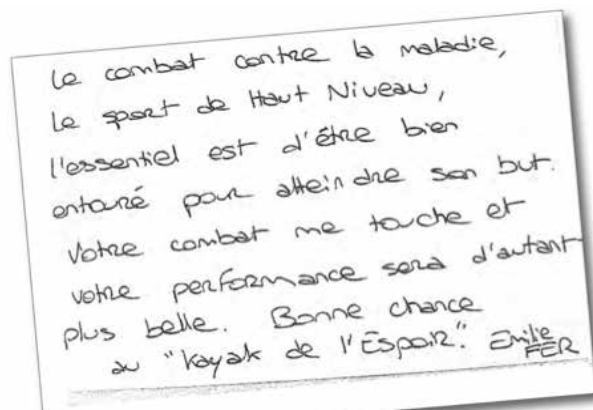 Le combat contre la maladie,
Le sport de Haut Niveau,
l'essentiel est d'être bien
entouré pour atteindre son but.
Votre combat me touche et
votre performance sera d'autant
plus belle. Bonne chance
au "Kayak de l'Espoir". Emilie
FER